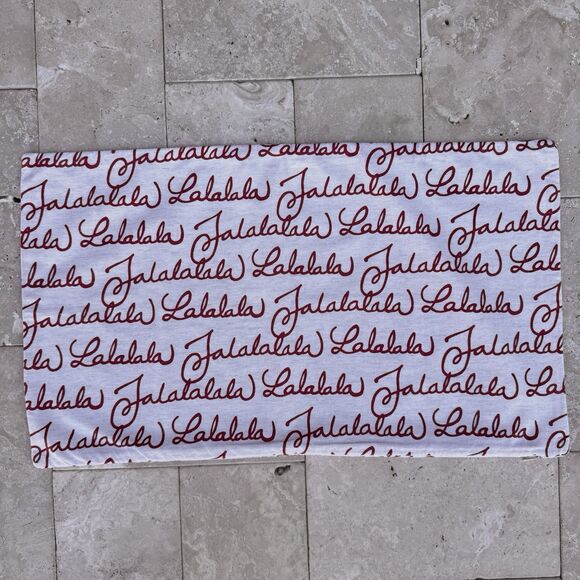 alalala Falalalala Lalalala Falalala
Falalalala Lalalala Falalalala Lalalala Fa
lala Lalalala Falalalala Lalalala Falalala
alalala Falalalala Lalalala Falalalala Lala
Falalalala Lalalala Falalalala Lalalala Fa
lala Lalalala Falalalala Lalalala Falalalal
alalala Falalalala Lalalala Falalalala La
Falalalala Lalalala Falalalala Lalalala